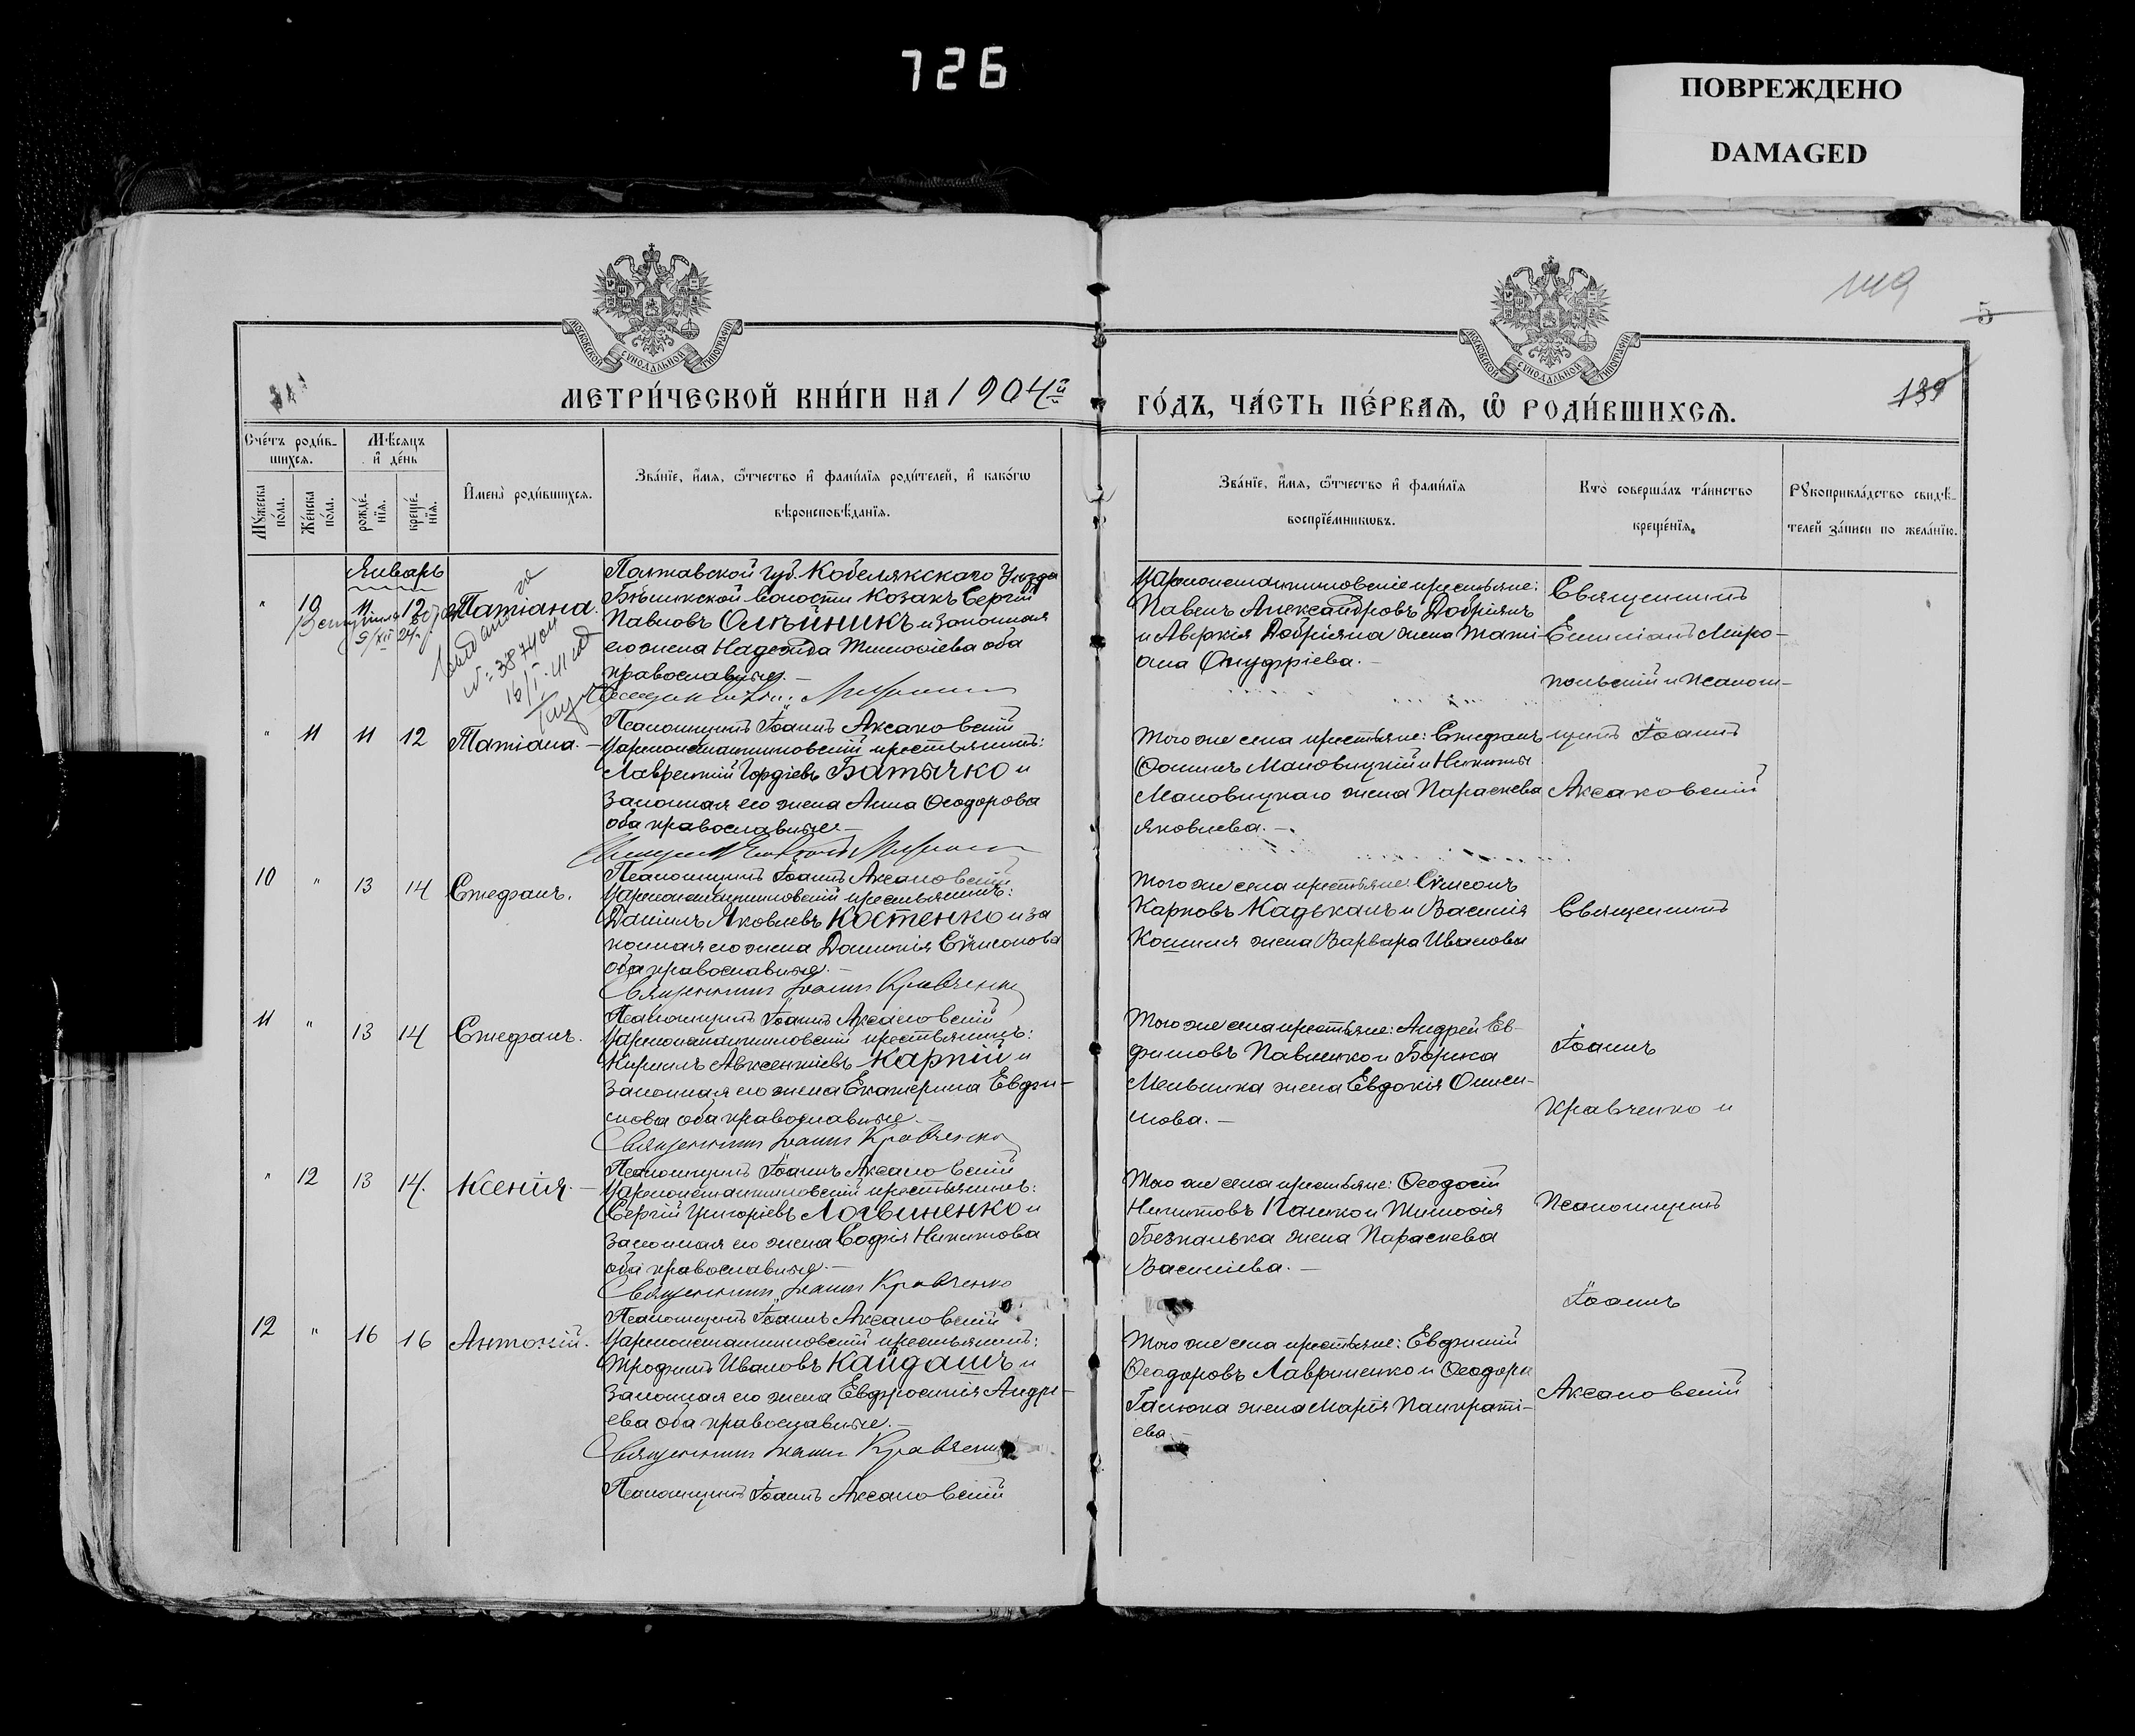 726
ПОВРЕЖДЕНО
DAMAGED
149
5
139
МОСКОВСКОЙ СѴНОДАЛЬНОЙ ТИПОГРАФІИ
МОСКОВСКОЙ СѴНОДАЛЬНОЙ ТИПОГРАФІИ
МЕТРИ́ЧЕСКОЙ КНИ́ГИ НА 1904й
ГО́ДЪ, ЧА́СТЬ ПЕ́РВАѦ, Ѡ РОДИ́ВШИХСѦ.
Сче́тъ роди́вшихсѧ.
Мѣ́сѧцъ и҆ де́нь
Мꙋ́жеска по́ла.
Же́нска по́ла.
рожде́нїѧ.
креще́нїѧ.
И҆мена̀ роди́вшихсѧ.
Зва́нїе, и҆́мѧ, ѻ҆́тчество и҆ фами́лїѧ роди́телей, и҆ како́гѡ
вѣроисповѣ́данїѧ.
Зва́нїе, и҆́мѧ, ѻ҆́тчество и҆ фами́лїѧ
воспрїе́мникѡвъ.
Кто̀ соверша́лъ та́инство
креще́нїѧ.
Рꙋкоприкла́дство свидѣ́телей за́писи по жела́нїю.
Январь
" 10 11 12 Татіана.
Полтавской губ. Кобелякскаго Уѣзда
волости козакъ Сергій
Павловъ Олѣйникъ и законная
его жена Надежда Тимоѳіева оба
православные.—
крестьяне:
Павелъ Александровъ Добріянъ
и Аверкія Добріяна жена Тати-
ана Онуфріева.—
Священникъ
Емиліанъ Миро-
польскій и псалом-
щикъ Іоаннъ
Аксаковскій
Псаломщикъ Іоаннъ Аксаковскій
" 11 11 12 Татіана.—
крестьянинъ:
Лаврентій Гордіевъ Батычко и
законная его жена Анна Ѳеодорова
оба православные.—
Того же села крестьяне: Стефанъ
Маловицкій и Никиты
Маловицкаго жена Параскева
Яковлева.—
Псаломщикъ Іоаннъ Аксаковскій
10 " 13 14 Стефанъ.
крестьянинъ:
Даніилъ Яковлевъ Костенко и за
конная его жена Домникія Сѵмеонова
оба православные.—
Священникъ Іоаннъ Кравченко
Того же села крестьяне: Сѵмеонъ
Карповъ Кадькалъ и Василія
Кошиля жена Варвара Иванова
Священникъ
Псаломщикъ Іоаннъ Аксаковскій
11 " 13 14 Стефанъ.
крестьянинъ:
Кириллъ Авксентіевъ Карпій и
законная его жена Екатерина Евфи-
мова оба православные.—
Священникъ Іоаннъ Кравченко
Того же села крестьяне: Андрей Ев-
фимовъ Павленко и Бориса
Мельника жена Евдокія
Іоаннъ
Кравченко и
Псаломщикъ Іоаннъ Аксаковскій
" 12 13 14. Ксенія.—
крестьянинъ:
Сергій Григоріевъ Логвиненко и
законная его жена Софія Никитова
оба православные.—
Священникъ Іоаннъ Кравченко
Того же села крестьяне: Ѳеодосій
Никитовъ Пашко и Тимоѳія
Безпалька жена Параскева
Василіева.—
Псаломщикъ
Іоаннъ
Псаломщикъ Іоаннъ Аксаковскій
12 " 16 16 Антоній.
крестьянинъ:
Трофимъ Ивановъ Кайдашъ и
законная его жена Евфросинія Андре-
ева оба православные.—
Священникъ Іоаннъ Кравченко
Того же села крестьяне: Евфимій
Ѳеодоровъ Лавриненко и Ѳеодора
Галюка жена Марія Панкраті-
ева.—
Аксаковскій
Псаломщикъ Іоаннъ Аксаковскій